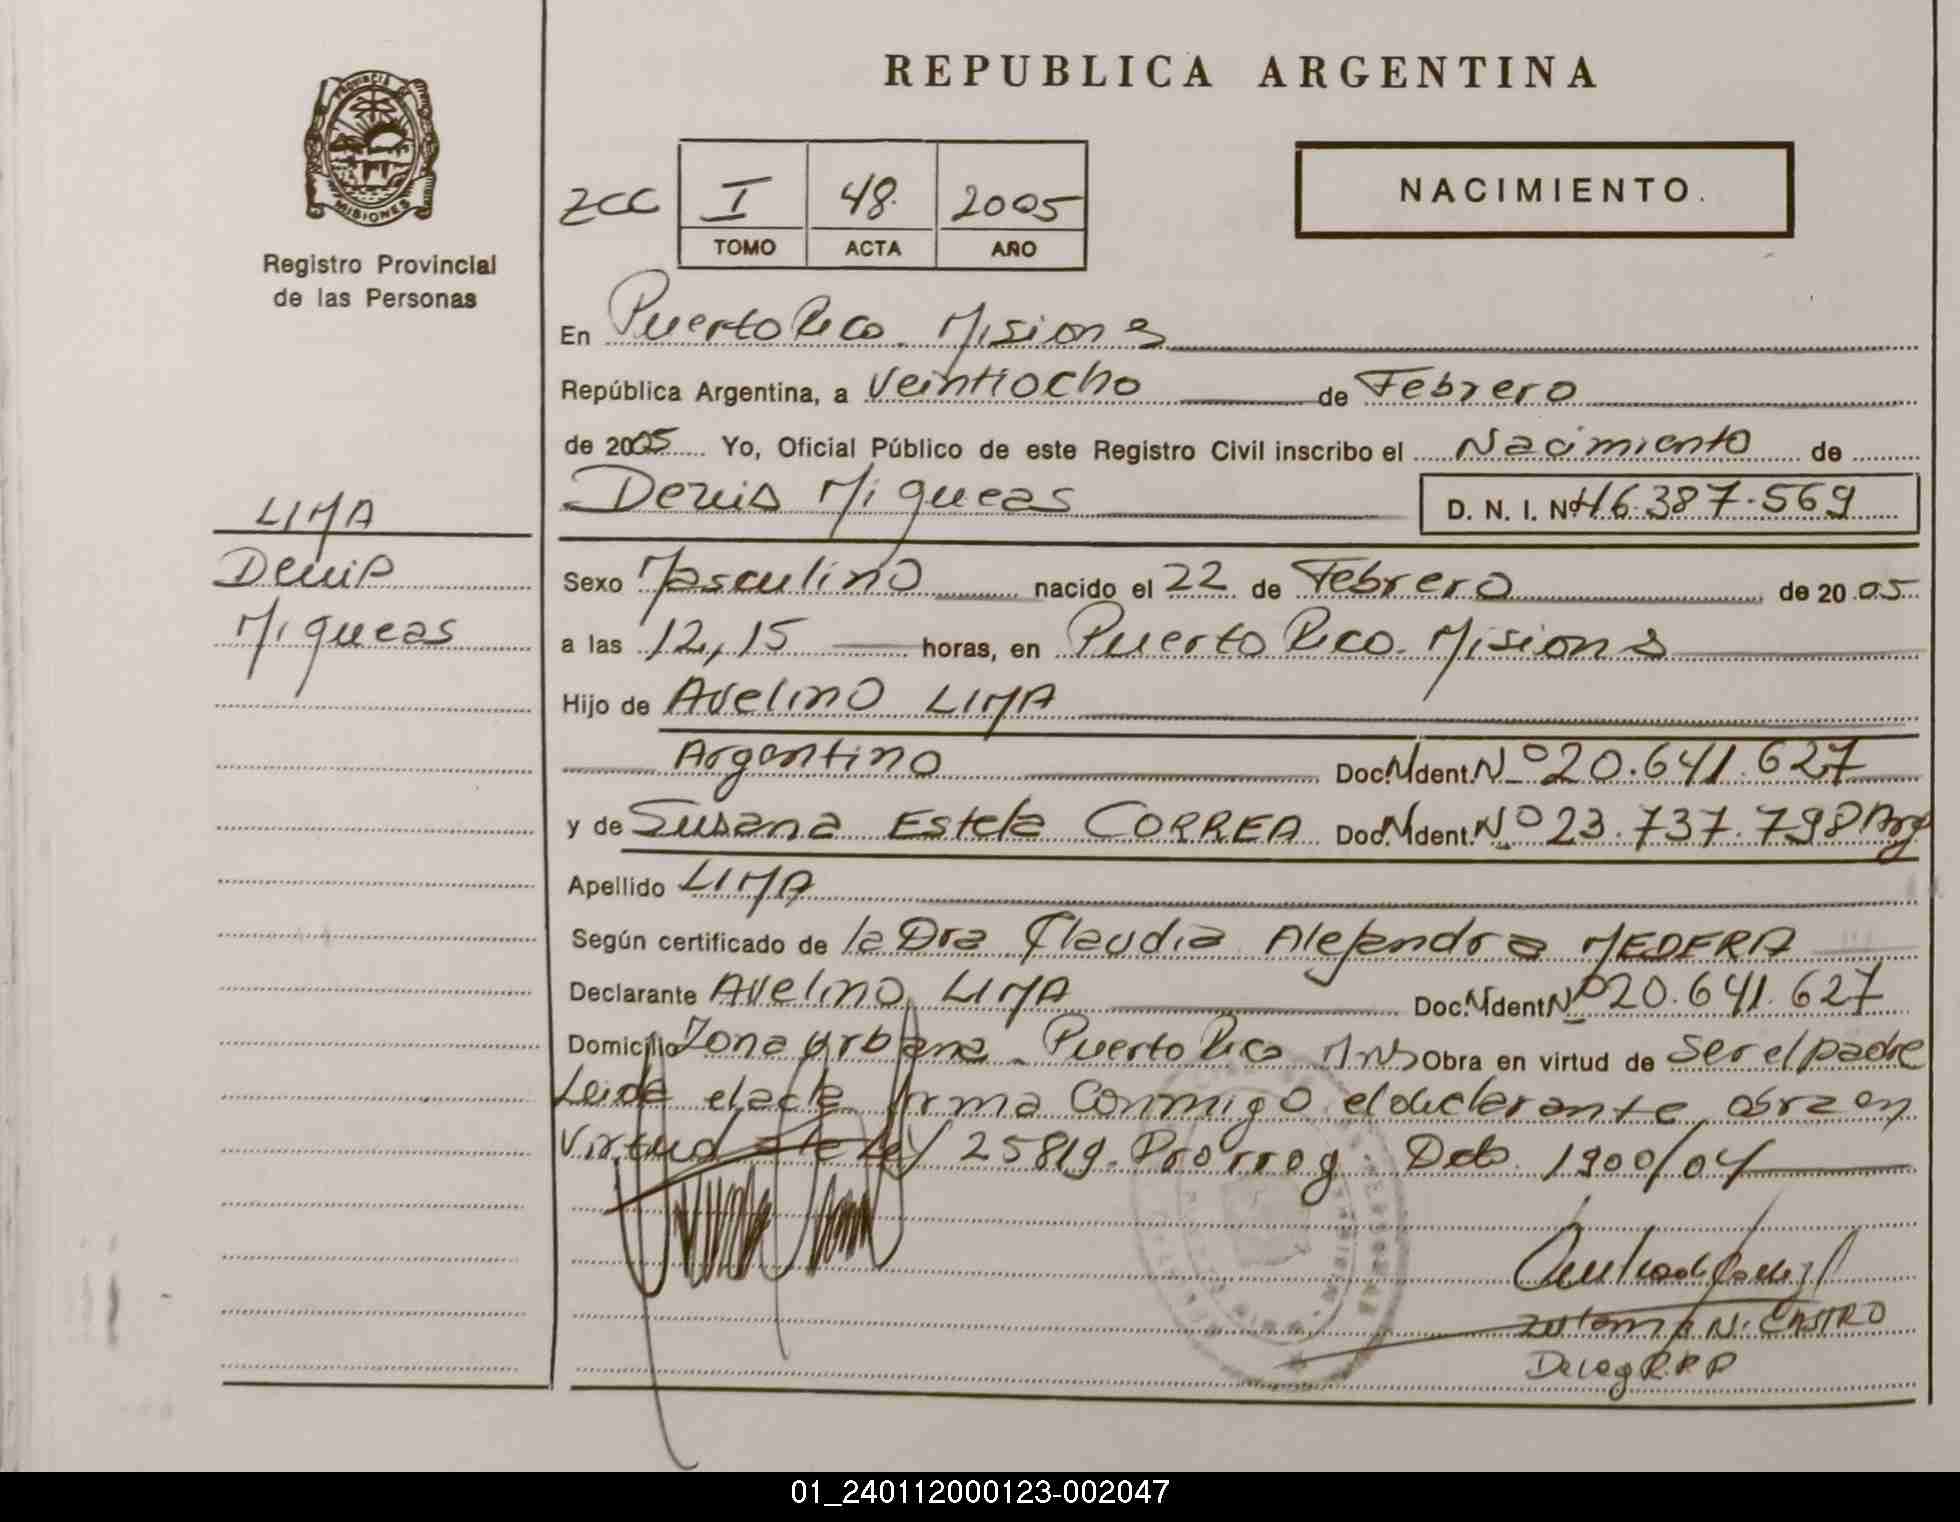 REPUBLICA ARGENTINA
PROVINCIA DE MISIONES
Registro Provincial
de las Personas
NACIMIENTO.
ZCC I 48 2005
TOMO ACTA AÑO
En Puerto Rico. Misiones
República Argentina, a Veintiocho de Febrero
de 2005 Yo, Oficial Público de este Registro Civil inscribo el Nacimiento de
Denis Miqueas D. N. I. Nº 46.387.569
LIMA
Denis
Miqueas
Sexo Masculino nacido el 22 de Febrero de 2005
a las 12,15 horas, en Puerto Rico. Misiones
Hijo de Avelino LIMA
Argentino Doc. Ident. Nº 20.641.627
y de Susana Estela CORREA Doc. Ident. Nº 23.737.798 Arg
Apellido LIMA
Según certificado de la Dra Claudia Alejandra MEDERA
Declarante Avelino LIMA Doc. Ident Nº 20.641.627
Domicilio Zona urbana. Puerto Rico Mns Obra en virtud de ser el padre
Leida el acta firma conmigo el declarante obra en
virtud de Ley 25819. Prorrog Dcto. 1900/04
N. CASTRO
Deleg R.P.P
01_240112000123-002047